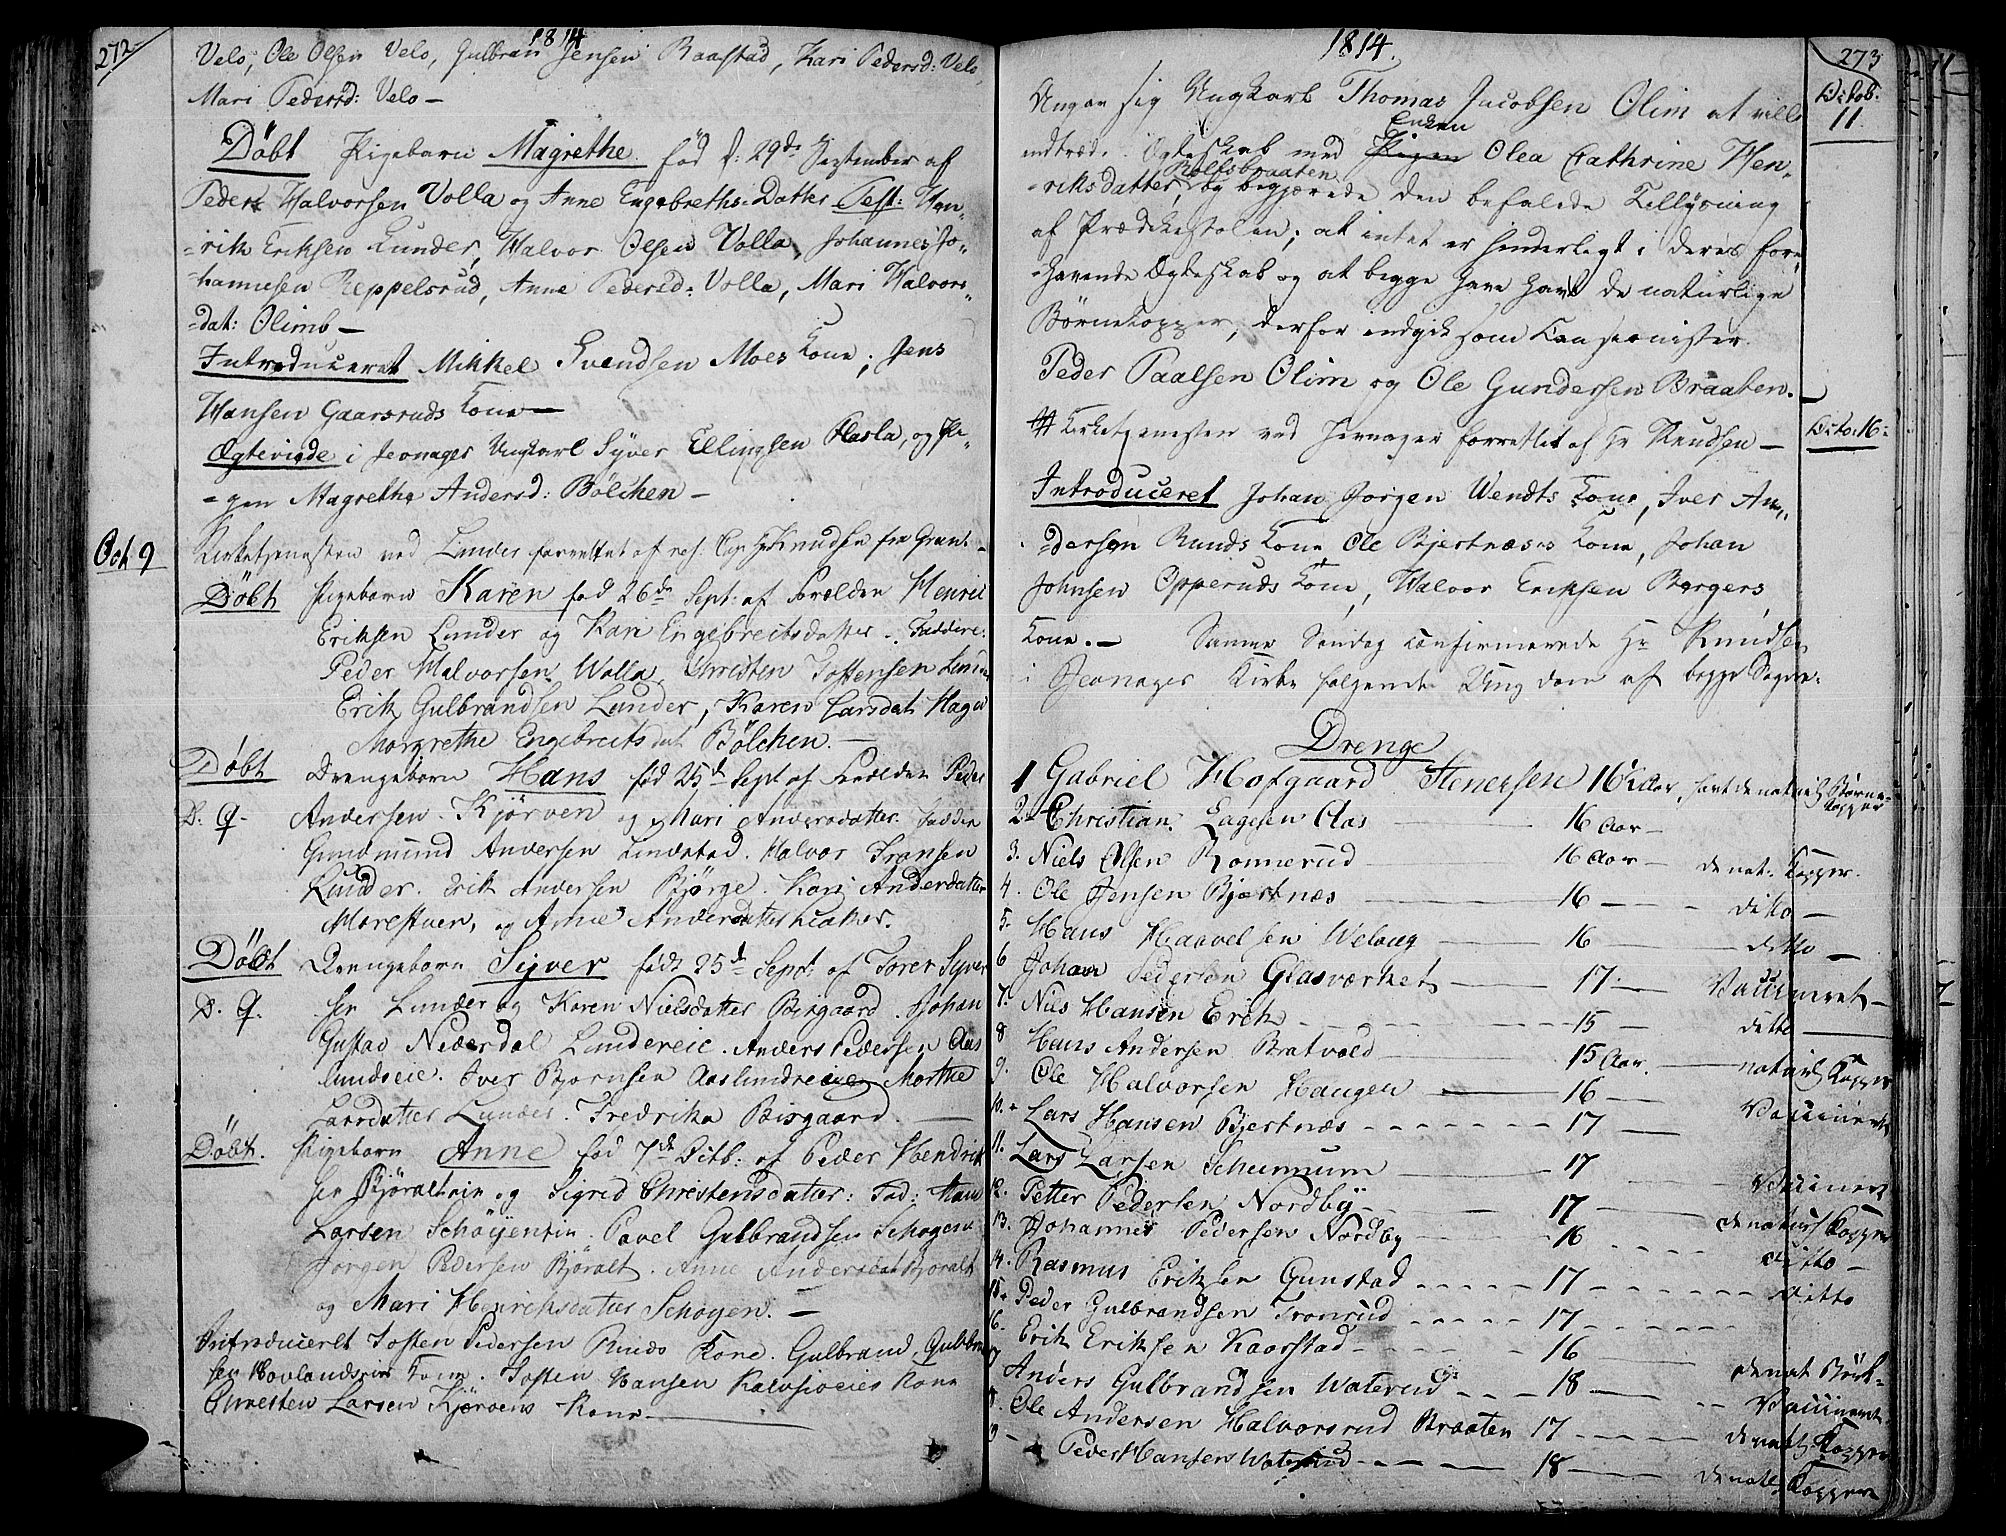 272
1814
Velo, Ole Olsen Velo, Gulbran Jensen Raastad, Kari Pedersd: Velo
Mari Pedersd: Velo —
Döbt Pigebarn Magrethe fød d: 29de September af
Peder Halvorsen Volla og Anne Engebreths Datter Test: Hen-
-rik Eriksen Lunder, Halvor Olsen Volla, Johannes Jo-
-hannesen Reppelsrud, Anne Pedersd: Volla, Mari Halvors-
-dat: Olimb —
Introduceret Mikkel Svendsen Moes Kone, Jens
Hansen Gaarsruds Kone —
Ægteviede i Jevnager Ungkarl Syver Ellingsen Hasla, og Pi-
-gen Magrethe Andersd: Bölchen —
Oct 9
Kirketjenesten ved Lunder forrettet af res: Cap Hr Knudsen fra Gran
Döbt Pigebarn Karen fød 26de Sept: af Forælden Henric
Eriksen Lunder og Kari Engebreitsdatter. Faddere:
Peder Halvorsen Wolla, Christen Tostensen
Erik Gulbrandsen Lunder, Karen Larsdat Hagen
Margrethe Engebreitsdat Bölchen. —
Döbt Drengebarn Hans fød 25d Sept af Forælden Peder
D. 9. Andersen Kjörven og Mari Andersdatter. Faddere
Gundmund Andersen Lindstad. Halvor Fransen
Lunder. Erik Andersen Bjørge. Kari Andersdatter
Morestuen, og Anne Andersdatter
Döbt Drengebarn Syver født 25d Sept: af Torer Syver
D. 9. sen Lunder og Karen Nielsdatter Bisgaard. Johan
Gustad Nederdal Lundereie. Anders Pedersen Aas
lundseie. Iver Bjørnsen Aaslundseie Marthe
Larsdatter Lunder. Fredrika Bisgaard. —
Döbt. Pigebarn Anne fød 7de Octb: af Peder Hendrik
sen Björalt og Sigrid Christensdatter: Fad: Hans
Larsen Schöyen. Povel Gulbrandsen Schøyen
Jørgen Pedersen Björalt. Anne Andersdat Björalt
og Mari Henrichsdatter Schøyen. —
Introduceret Tosten Pedersen Ruuds Kone. Gulbrand Gulbran
sen Hovlands Kone. Tosten Hansen Kone
Christen Larsen Kjørvens Kone —
1814.
273
Octob.
11
Angav sig Ungkarl Thomas Jacobsen Olim at ville
indtræde i Ægteskab med Pigen Enken Olea Cathrine Hen-
-riksdatter, Rolfsbraaten og begjærede den befalede Tillysning
af Prædikestolen; at intet er hinderligt i deres fore-
-havende Ægteskab og at begge have havt de naturlige
Børnekopper, derfor indgik som Cautionister
Peder Paalsen Olim og Ole Gundersen Braaten. —
Octo. 16
Kirketjenesten ved Jevnager forrettet af Hr Knudsen —
Introduceret Johan Jørgen Wendts Kone, Iver An-
-dersen Ruuds Kone Ole Bjertnæses Kone, Johan
Johnsen Opperuds Kone, Halvor Eriksen Bergers
Kone. — Samme Søndag confirmerede Hr Knudsen
i Jevnager Kirke følgende Ungdom af begge Sogne:
Drenge
1 Gabriel Hofgaard Stenersen 16½ Aar, havt de naturl. Børne-
kopper
2. Christian Lagesen Aas — 16 Aar —
3. Niels Olsen Rønnerud — 16 Aar — de nat: Kopper.
4. Ole Jensen Bjertnæs — 16 — ditto —
5. Hans Haavelsen Welaug — 16 — ditto —
6 Johan Pedersen Glasværket — 17. — Vaccineret —
7. Nils Hansen Erik — 15 — ditto —
8 Hans Andersen Bratvold — 15 Aar. — naturl Kopper
9. Ole Halvorsen Haugen — 16 — Vaccineret
10. Lars Hansen Bjertnæs — 17 —
11. Lars Larsen Scheimum — 17 — Vaccineret
12. Petter Pedersen Nordby — 17 — de naturl Kopper
13. Johannes Pedersen Nordby — 16 — ditto —
14. Rasmus Eriksen Gunstad — 17 — ditto
15. Peder Gulbrandsen Tronrud — 17 —
16. Erik Eriksen Kaarstad — 16 — de nat Børk-
17 Anders Gulbrandsen Waterud — 18 — Vaccineret
8. Ole Andersen Halvorsrud Braaten 17 — de natl Kopper
9 — Peder Hansen Waterud — 18 — de natl. Kopper